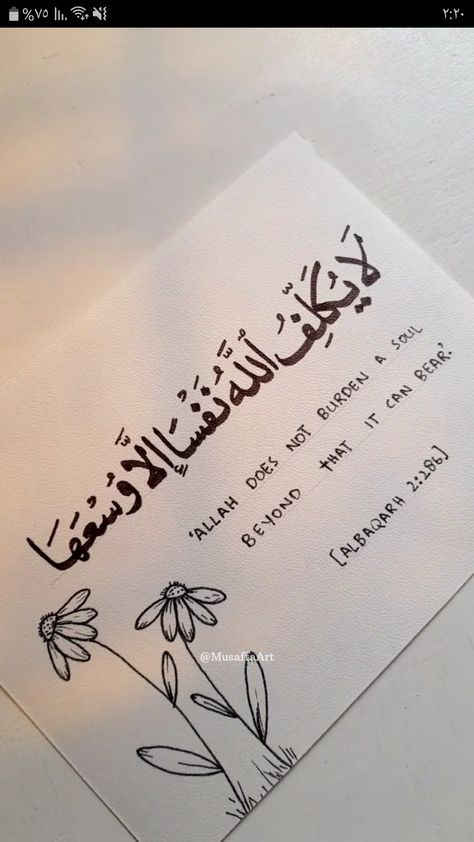 %٧٥
٢:٢٠
لَا يُكَلِّفُ ٱللَّهُ نَفْسًا إِلَّا وُسْعَهَا
'ALLAH DOES NOT BURDEN A SOUL
BEYOND THAT IT CAN BEAR.'
[ALBAQARH 2:286]
@MusaffaArt